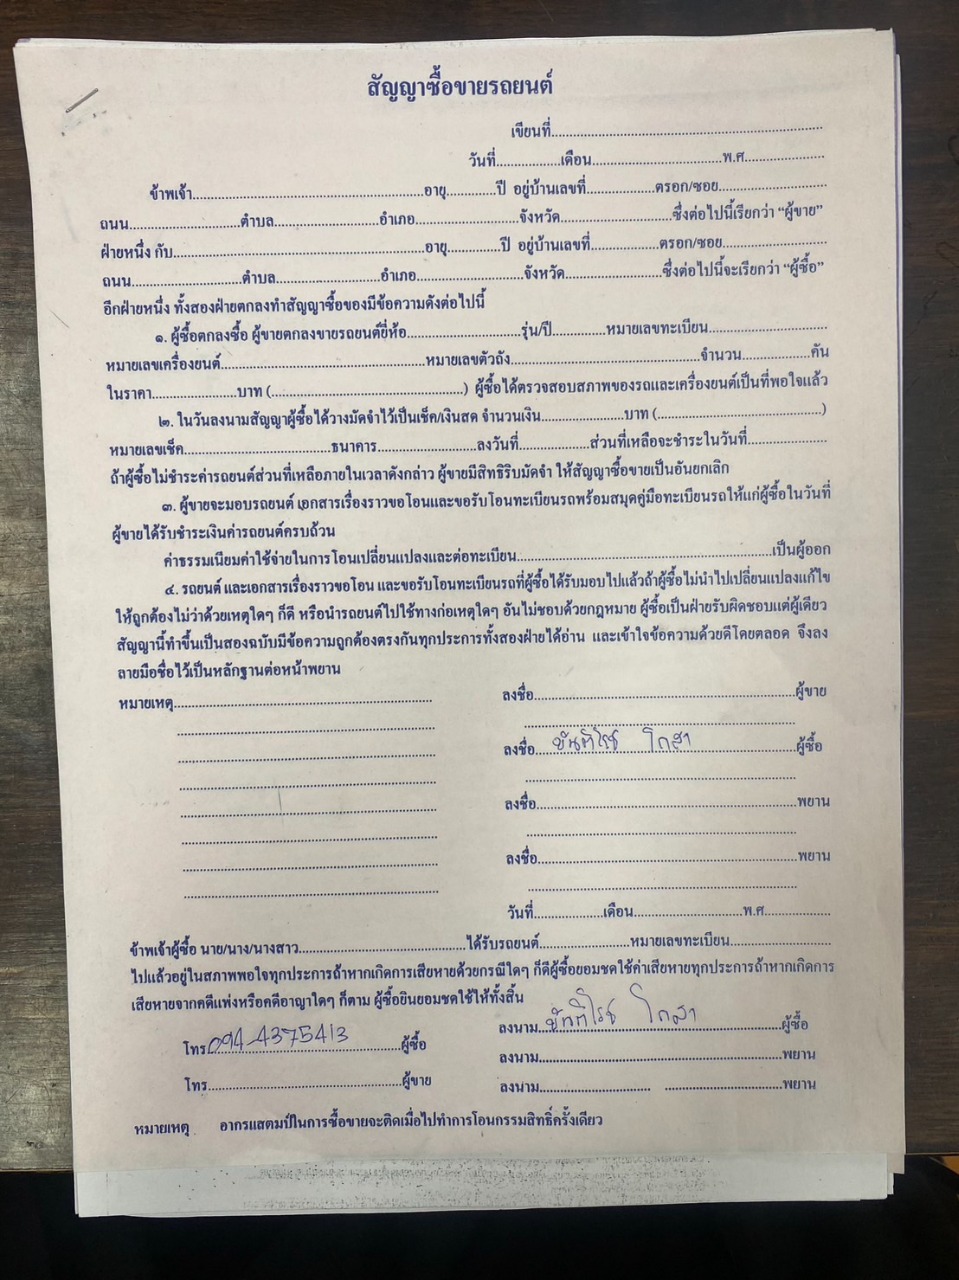 สัญญาซื้อขายรถยนต์
เขียนที่........................................
วันที่..................เดือน....................................พ.ศ......................
ข้าพเจ้า................................................................อายุ..............ปี อยู่บ้านเลขที่...................ตรอก/ซอย..............................
ถนน...............................ตำบล..............................อำเภอ.............................จังหวัด...............................ซึ่งต่อไปนี้เรียกว่า “ผู้ขาย”
ฝ่ายหนึ่ง กับ......................................................................อายุ...............ปี อยู่บ้านเลขที่...................ตรอก/ซอย.............................
ถนน...............................ตำบล..............................อำเภอ..............................จังหวัด...........................ซึ่งต่อไปนี้จะเรียกว่า “ผู้ซื้อ”
อีกฝ่ายหนึ่ง ทั้งสองฝ่ายตกลงทำสัญญาซื้อของมีข้อความดังต่อไปนี้
๑. ผู้ซื้อตกลงซื้อ ผู้ขายตกลงขายรถยนต์ยี่ห้อ................................รุ่น/ปี...............หมายเลขทะเบียน.................................
หมายเลขเครื่องยนต์.........................................................หมายเลขตัวถัง.....................................................จำนวน...................คัน
ในราคา........................บาท (......................................................) ผู้ซื้อได้ตรวจสอบสภาพของรถและเครื่องยนต์เป็นที่พอใจแล้ว
๒. ในวันลงนามสัญญาผู้ซื้อได้วางมัดจำไว้เป็นเช็ค/เงินสด จำนวนเงิน.......................บาท (..............................................)
หมายเลขเช็ค.........................................ธนาคาร............................ลงวันที่....................ส่วนที่เหลือจะชำระในวันที่......................
ถ้าผู้ซื้อไม่ชำระค่ารถยนต์ส่วนที่เหลือภายในเวลาดังกล่าว ผู้ขายมีสิทธิริบมัดจำ ให้สัญญาซื้อขายเป็นอันยกเลิก
๓. ผู้ขายจะมอบรถยนต์ เอกสารเรื่องราวขอโอนและขอรับโอนทะเบียนรถพร้อมสมุดคู่มือทะเบียนรถให้แก่ผู้ซื้อในวันที่
ผู้ขายได้รับชำระเงินค่ารถยนต์ครบถ้วน
ค่าธรรมเนียมค่าใช้จ่ายในการโอนเปลี่ยนแปลงและต่อทะเบียน......................................................................เป็นผู้ออก
๔. รถยนต์ และเอกสารเรื่องราวขอโอน และขอรับโอนทะเบียนรถที่ผู้ซื้อได้รับมอบไปแล้วถ้าผู้ซื้อไม่นำไปเปลี่ยนแปลงแก้ไข
ให้ถูกต้องไม่ว่าด้วยเหตุใดๆ ก็ดี หรือนำรถยนต์ไปใช้ทางก่อเหตุใดๆ อันไม่ชอบด้วยกฎหมาย ผู้ซื้อเป็นฝ่ายรับผิดชอบแต่ผู้เดียว
สัญญานี้ทำขึ้นเป็นสองฉบับมีข้อความถูกต้องตรงกันทุกประการทั้งสองฝ่ายได้อ่าน และเข้าใจข้อความด้วยดีโดยตลอด จึงลง
ลายมือชื่อไว้เป็นหลักฐานต่อหน้าพยาน
หมายเหตุ........................................................................
ลงชื่อ........................................................................ผู้ขาย
ลงชื่อ........................................................................ผู้ซื้อ
ลงชื่อ........................................................................พยาน
ลงชื่อ........................................................................พยาน
วันที่...................เดือน..............................พ.ศ...................
ข้าพเจ้าผู้ซื้อ นาย/นาง/นางสาว..............................................ได้รับรถยนต์.........................หมายเลขทะเบียน............................
ไปแล้วอยู่ในสภาพพอใจทุกประการถ้าหากเกิดการเสียหายด้วยกรณีใดๆ ก็ดีผู้ซื้อยอมชดใช้ค่าเสียหายทุกประการถ้าหากเกิดการ
เสียหายจากคดีแพ่งหรือคดีอาญาใดๆ ก็ตาม ผู้ซื้อยินยอมชดใช้ให้ทั้งสิ้น
ลงนาม..................................................................ผู้ซื้อ
โทร 094-4375413 ผู้ซื้อ
ลงนาม..................................................................พยาน
โทร......................................................ผู้ขาย
ลงนาม............................... .................................พยาน
หมายเหตุ อากรแสตมป์ในการซื้อขายจะติดเมื่อไปทำการโอนกรรมสิทธิ์ครั้งเดียว